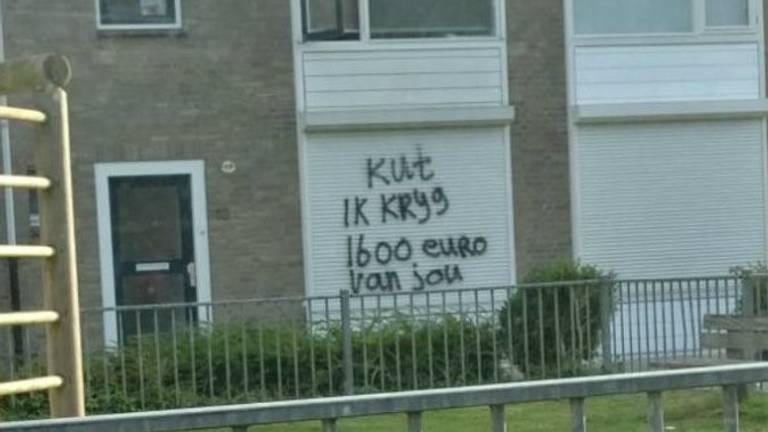 Kut
IK KRyg
1600 euro
van jou